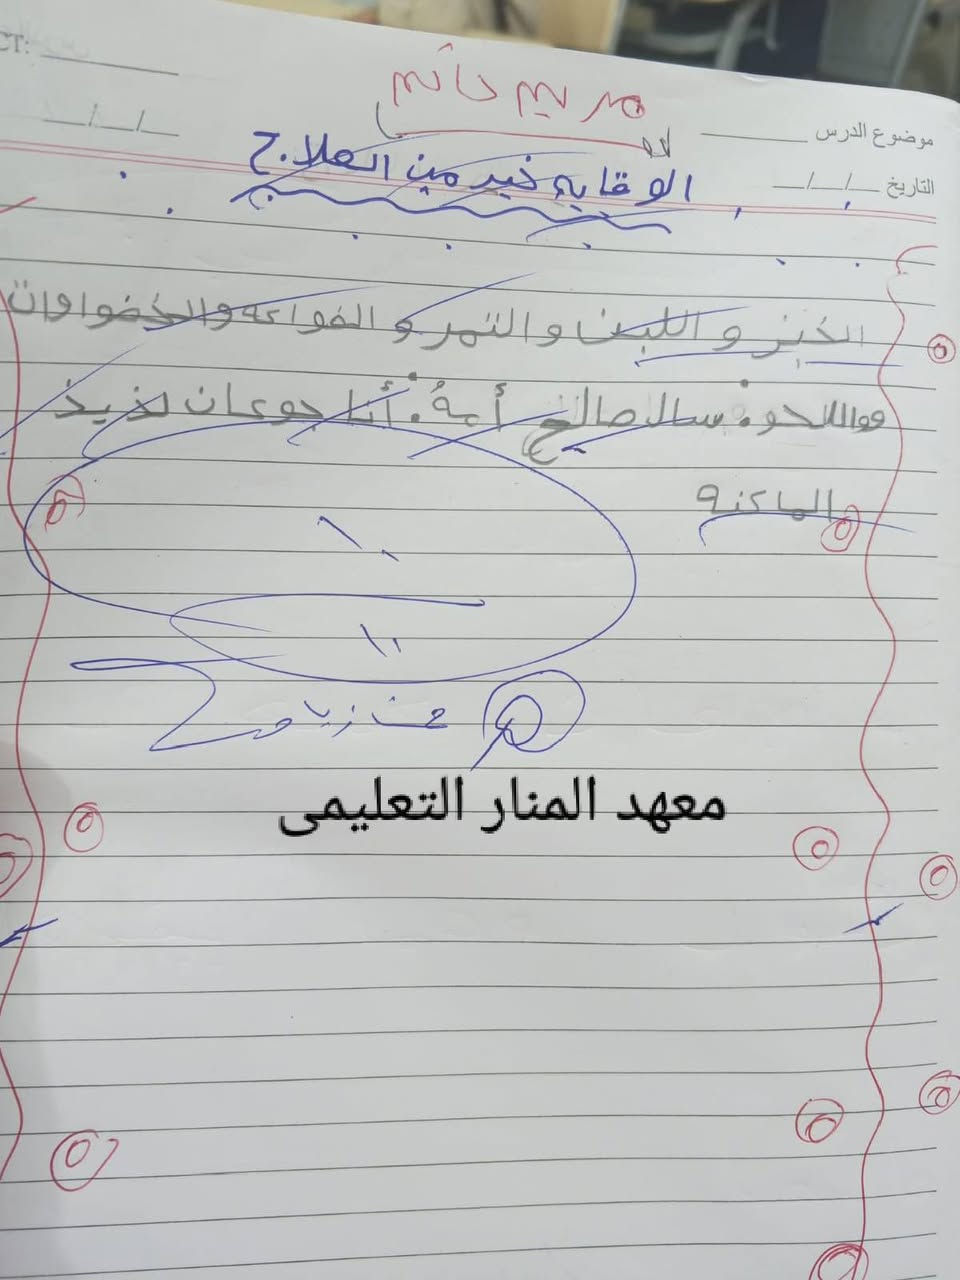 CT:
مريم حاتم
موضوع الدرس
التاريخ / /
الوقايه خير من العلاج
الخبز و اللبن والتمر و الفواكه والخضواوات
وواللحو. سال صالح أمهُ. أنا جوعان لذيذ
الماكنه
١٠
١٠
معهد المنار التعليمى